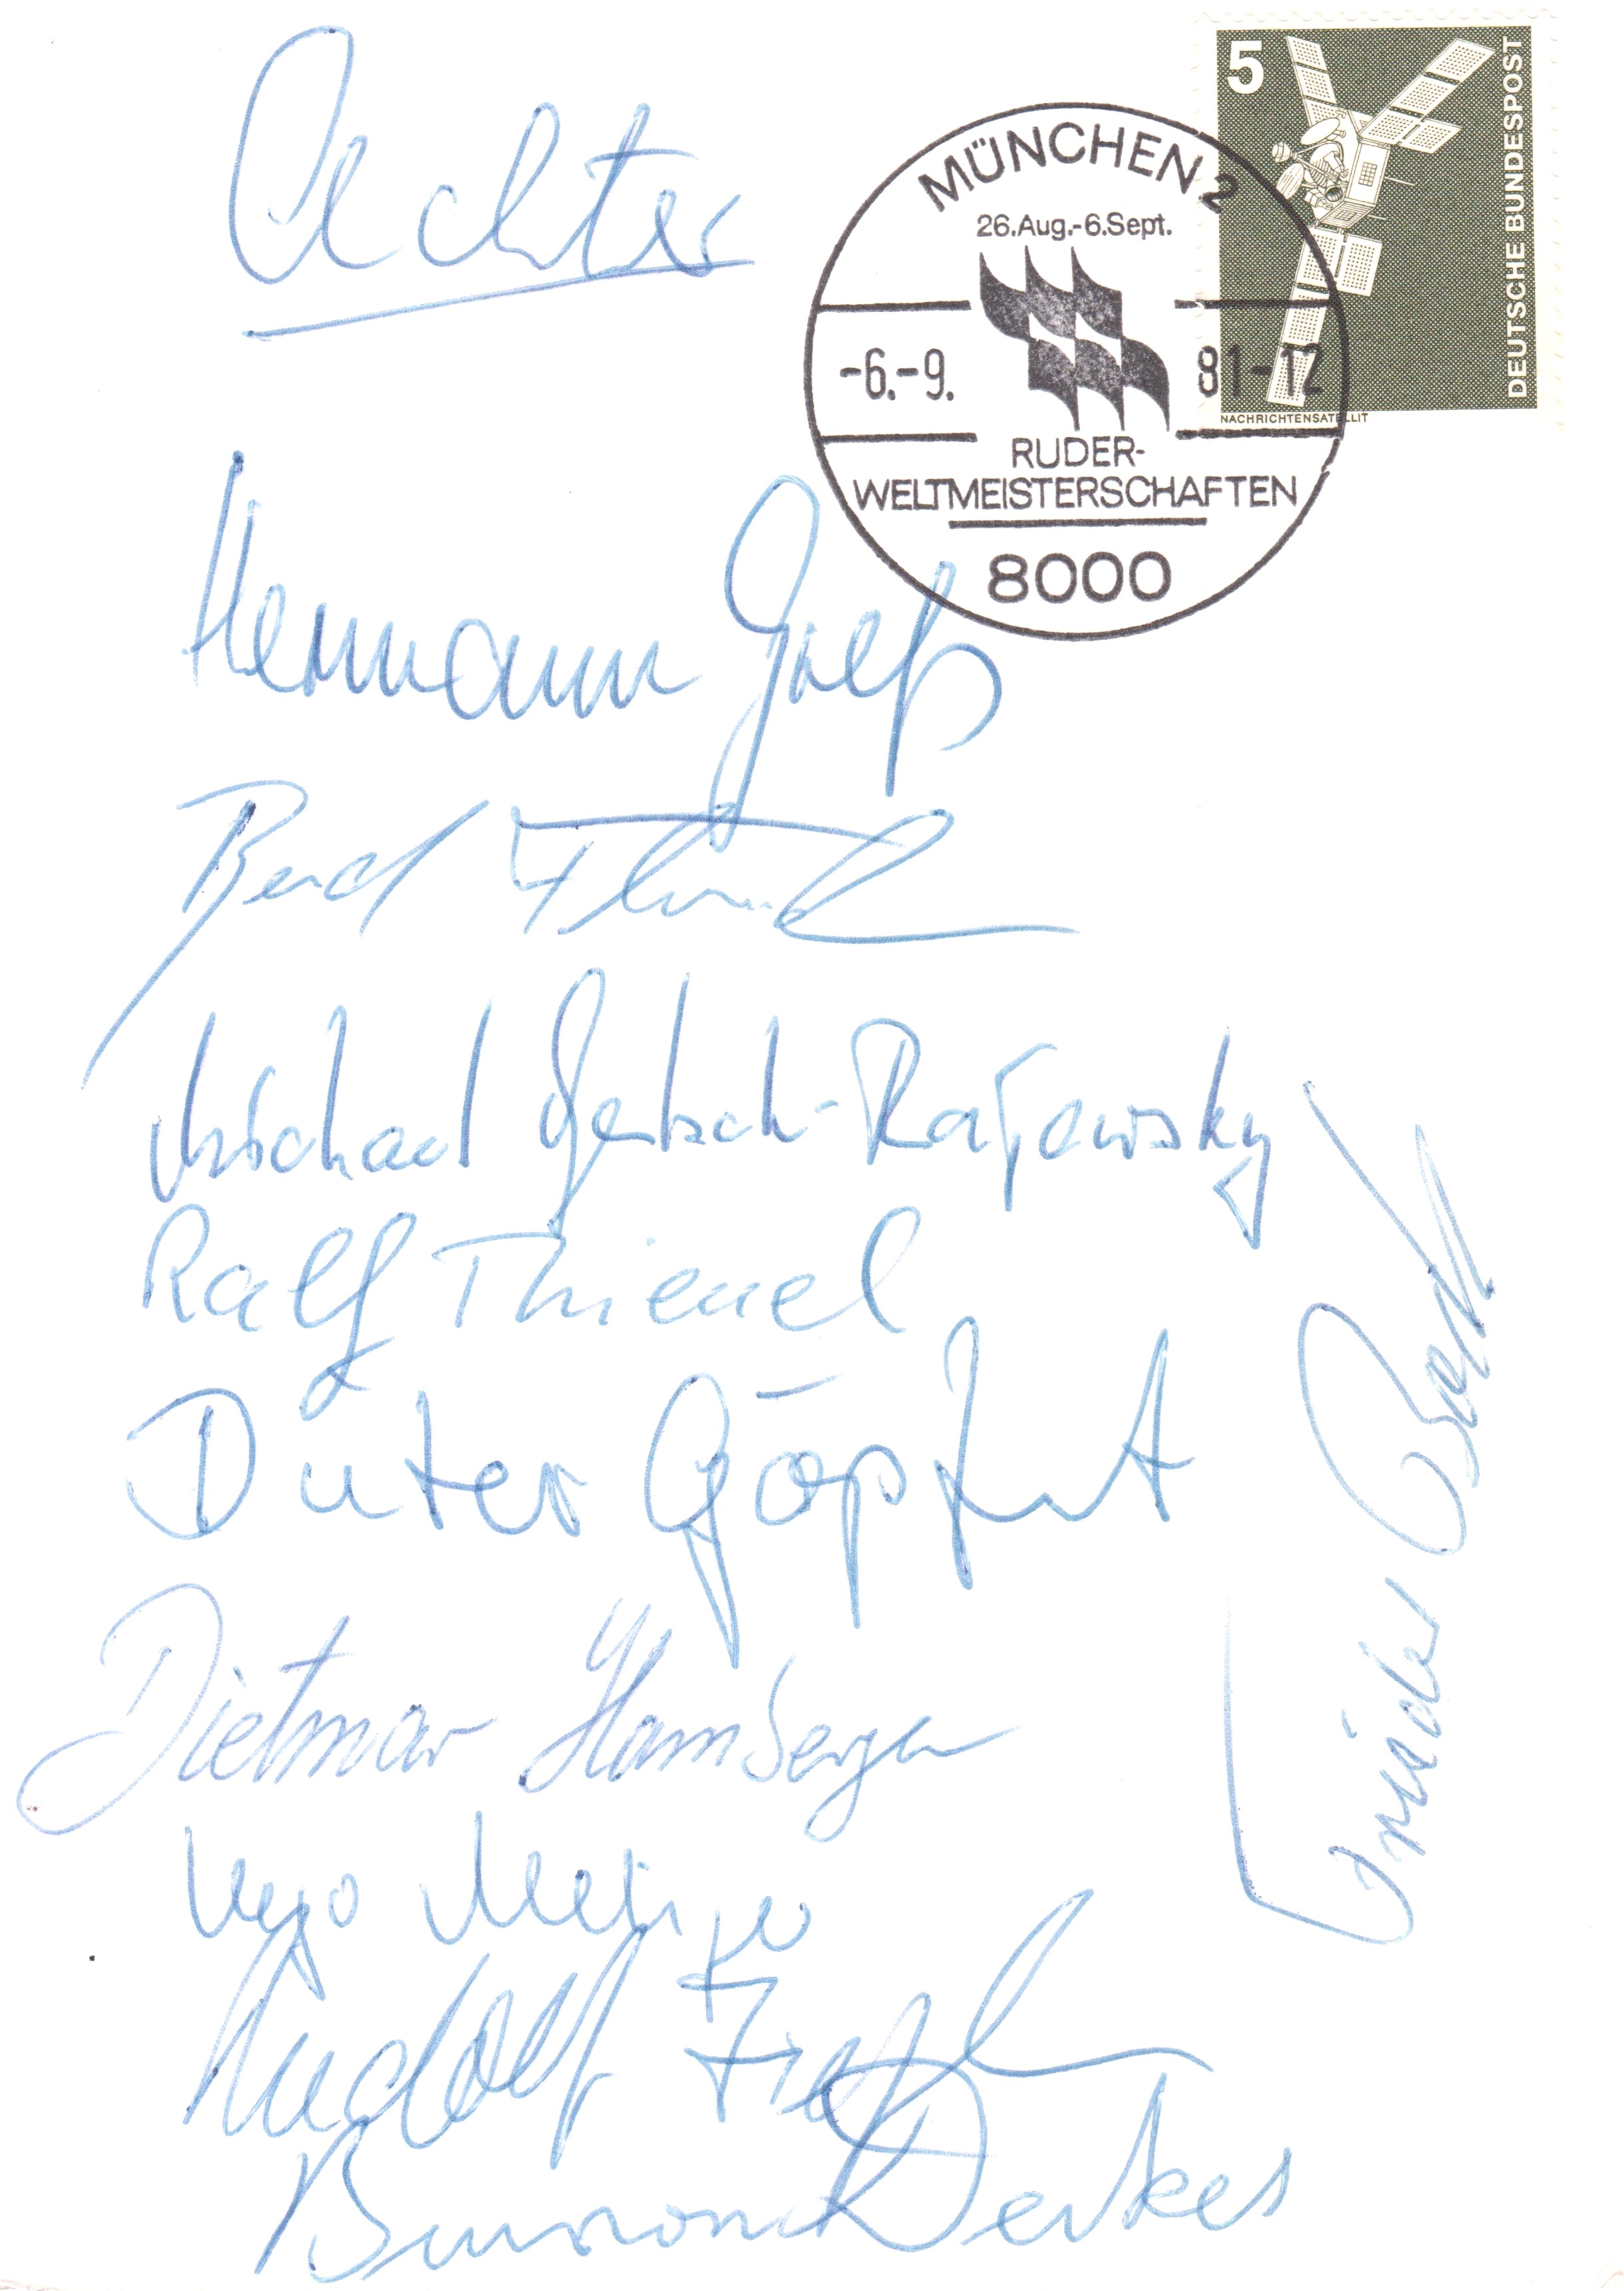 Achter
5
DEUTSCHE BUNDESPOST
NACHRICHTENSATELLIT
MÜNCHEN 2
26.Aug.-6.Sept.
-6.-9. 81-12
RUDER-
WELTMEISTERSCHAFTEN
8000
Hermann Greß
Bernd
Michael Gentsch-Razowsky
Ralf Thienel
Dieter Göpfert
Dietmar Hamberger
Ingo
Rudolf Ziegler
Burono Derkes